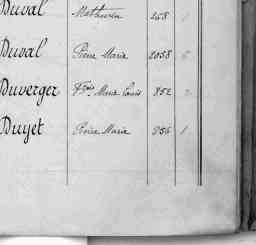 Duval Mathurin 248 1
Duval Pierre Marie 2058 5
Duverger Fçois Marie Louis 852 2
Duyet Pierre Marie 956 1